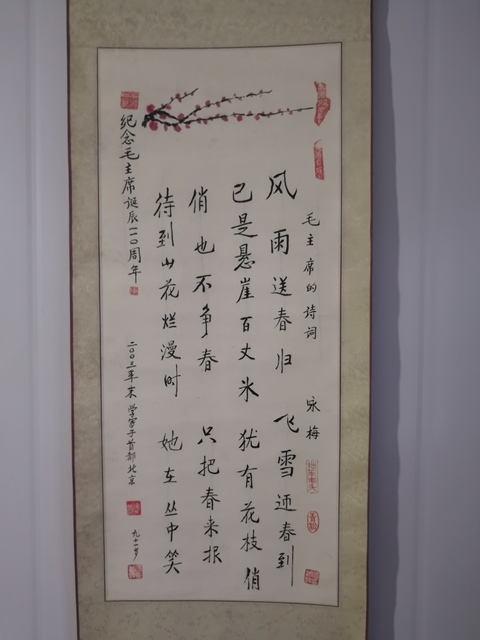 毛主席的诗词 咏梅
风雨送春归 飞雪迎春到
已是悬崖百丈冰 犹有花枝俏
俏也不争春 只把春来报
待到山花烂漫时 她在丛中笑
纪念毛主席诞辰一一〇周年
二〇〇三年末 学写于首都北京